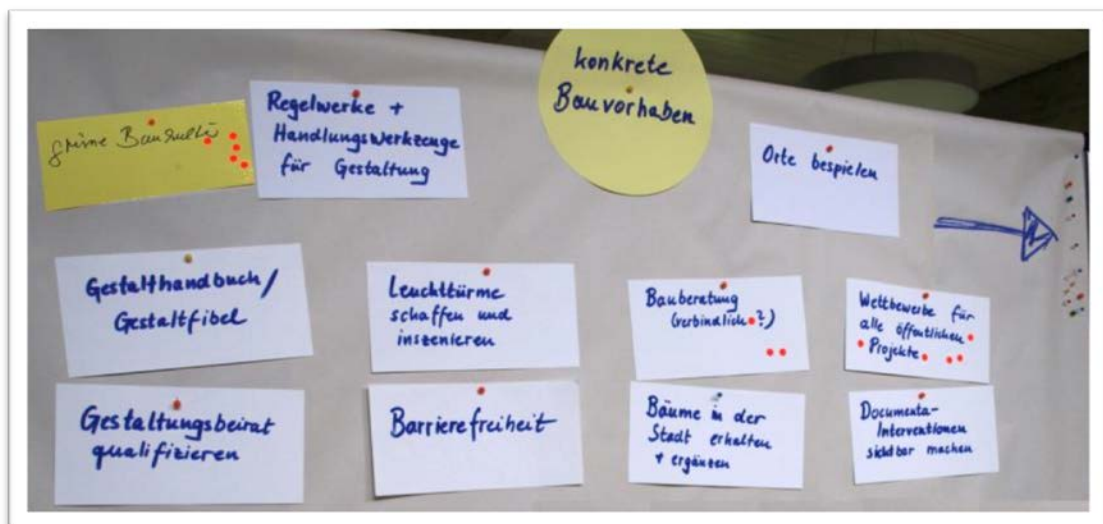 konkrete
Bauvorhaben
grüne Baukultur
Regelwerke +
Handlungswerkzeuge
für Gestaltung
Orte bespielen
Gestalthandbuch/
Gestaltfibel
Leuchttürme
schaffen und
inszenieren
Bauberatung
(verbindlich?)
Wettbewerbe für
alle öffentlichen
Projekte
Gestaltungsbeirat
qualifizieren
Barrierefreiheit
Bäume in der
Stadt erhalten
+ ergänzen
Documenta-
Interventionen
sichtbar machen